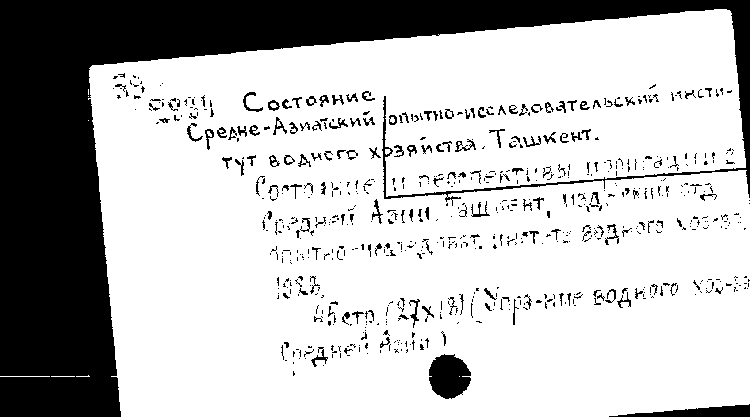 59
Состояние
Средне-Азиатский опытно-исследовательский инсти-
тут водного хозяйства. Ташкент.
Состояние и перспективы ирригации в
Средней Азии. Ташкент, изд.
опытно-исследоват. инст-та водного хоз-ва,
1928.
45 стр. (27х18) (Упра-ние водного хоз-ва
Средней Азии)